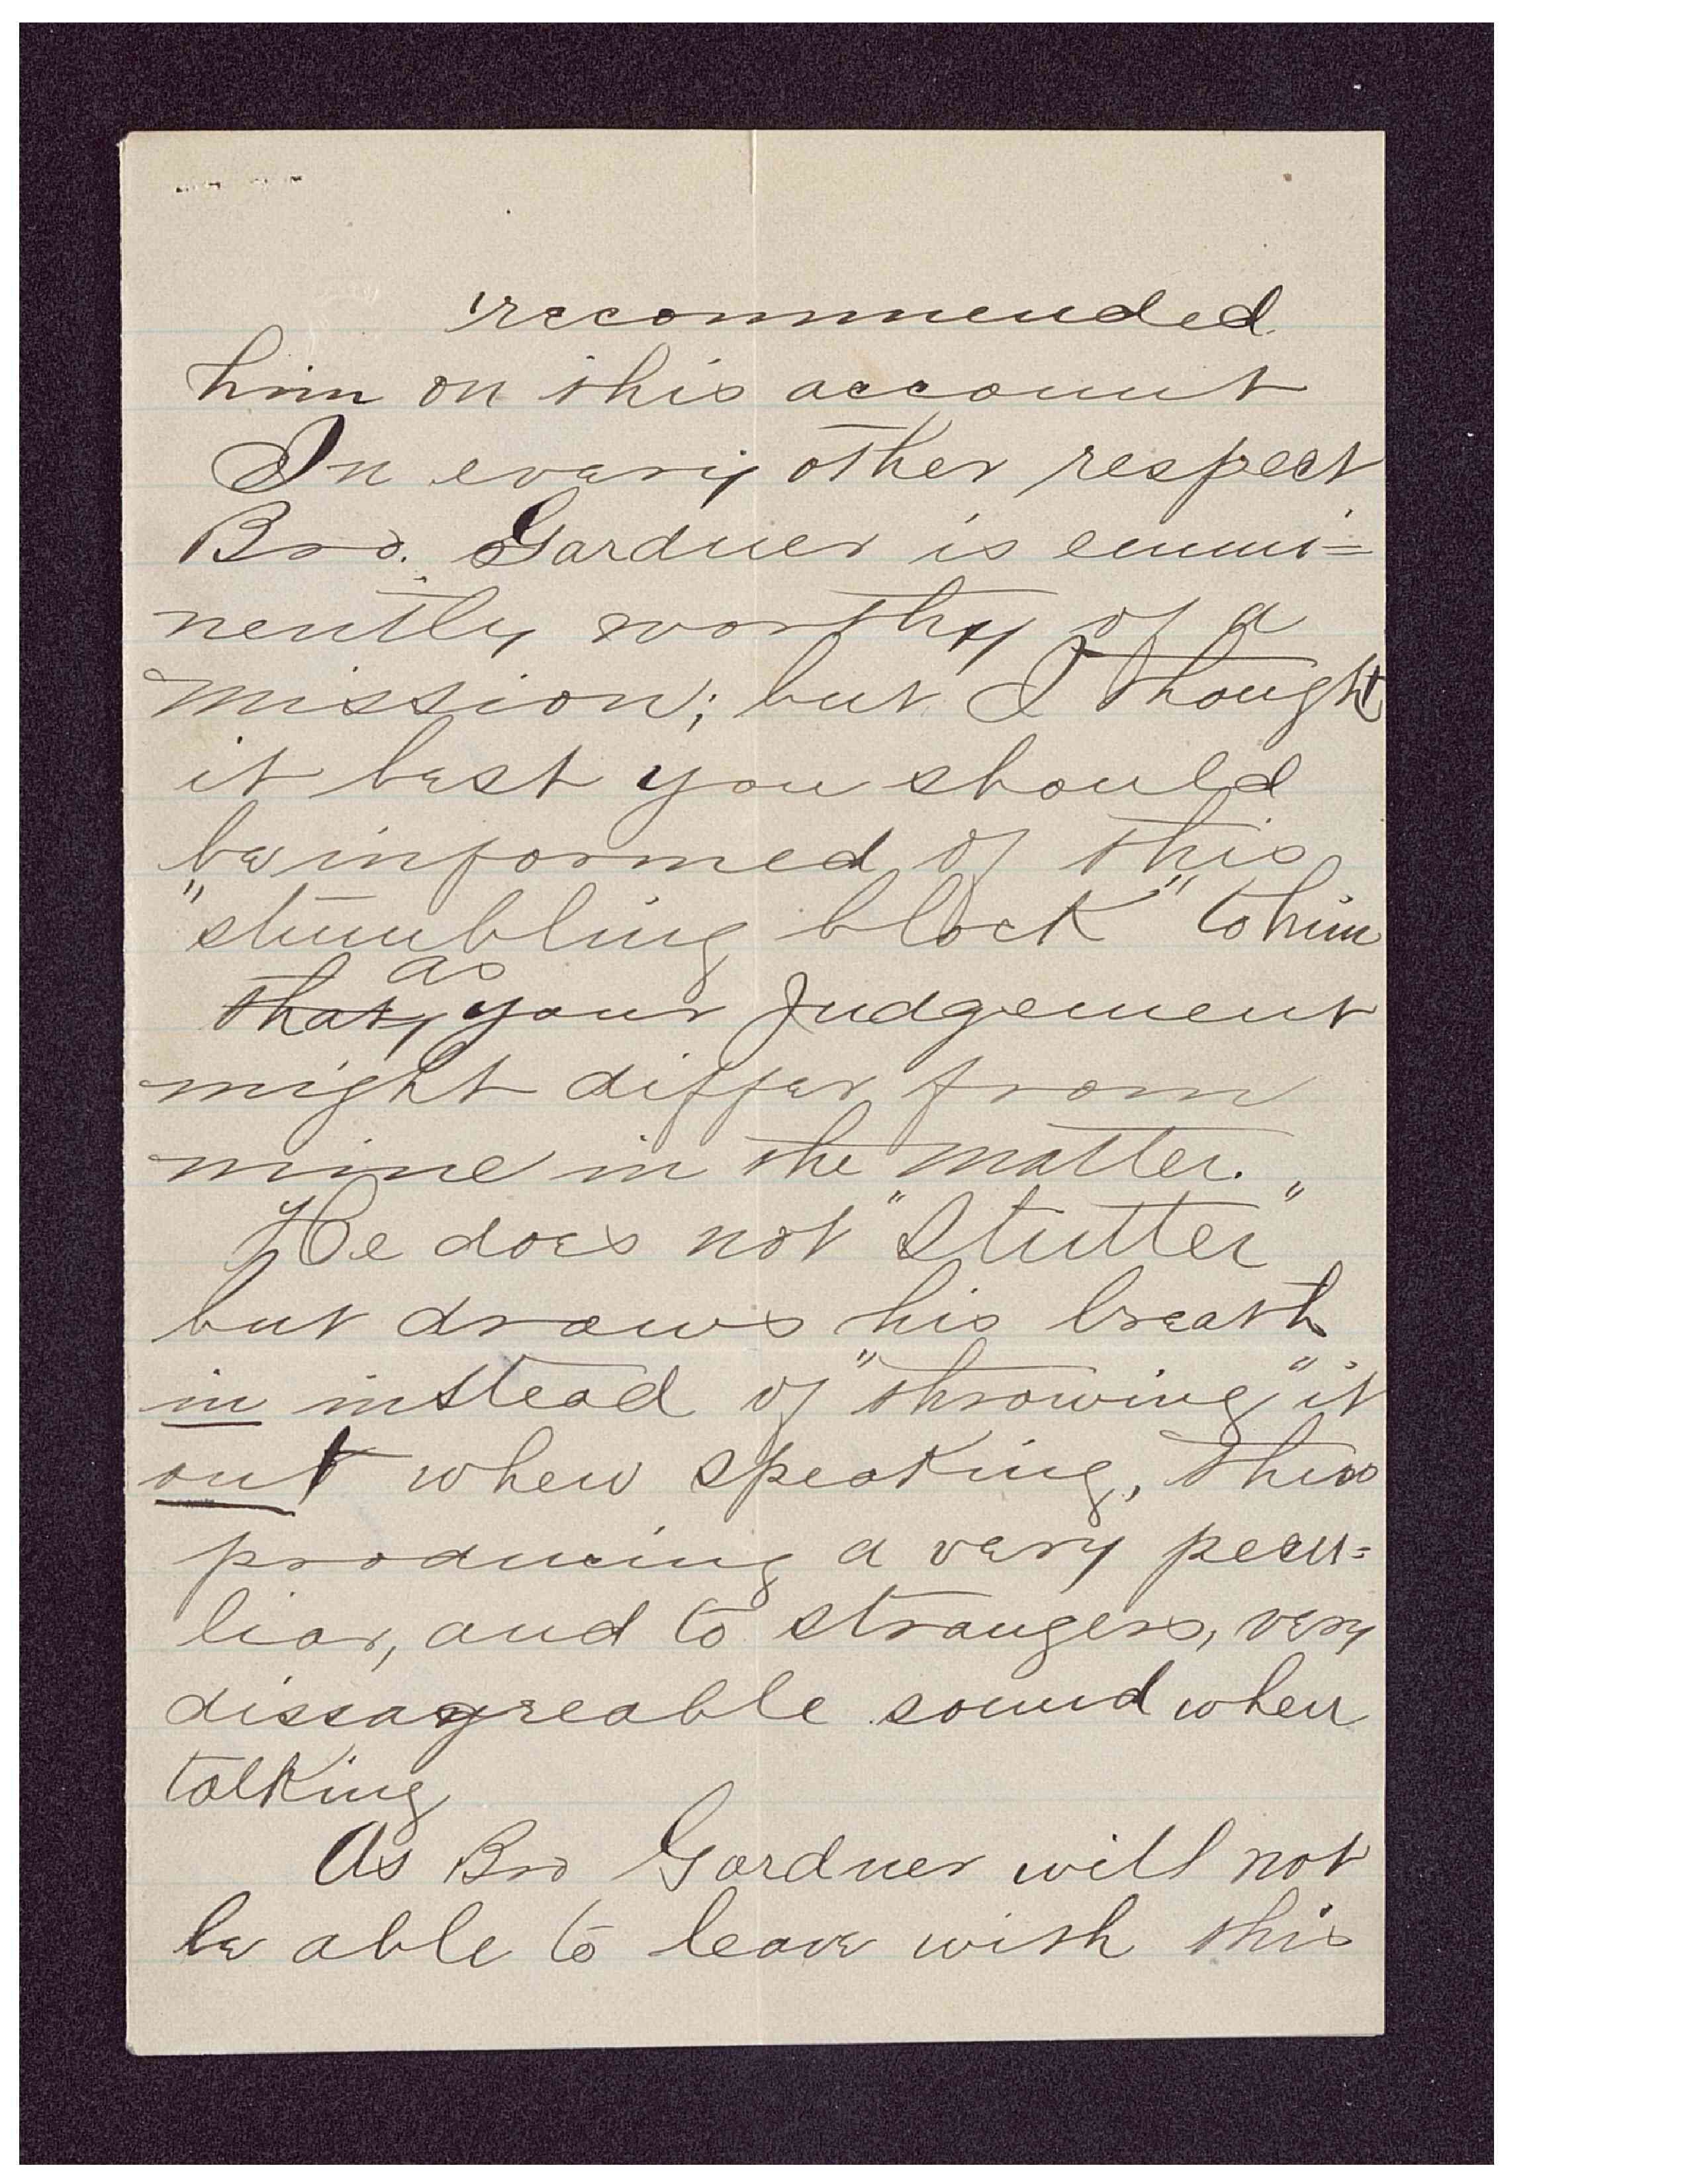 recommended
him on this account
In every other respect
Bro. Gardner is emmi=
nently worthy of a
mission; but I thought
it best you should
be informed of this
"stumbling block" to him
as
that, your Judgement
might differ from
mine in the matter.
He does not "Stutter"
but draws his breath
in instead of "throwing" it
out when speaking, thus
producing a very pecu=
liar, and to strangers, very
dissagreable sound when
talking
As Bro Gardner will not
be able to leave with this